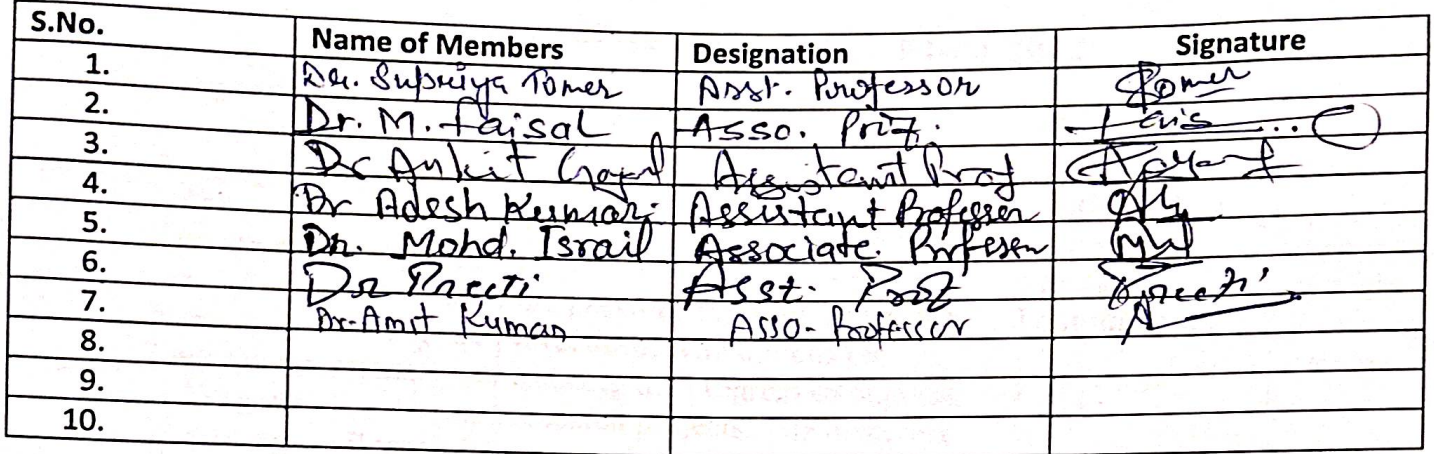 S.No. Name of Members Designation Signature
1. Dr. Supriya Tomer Asst. Professor Tomer
2. Dr. M. Faisal Asso. Prof.
3. Dr Ankit Goyal Assistant Prof
4. Dr Adesh Kumar Assistant Professor
5. Dr. Mohd. Israil Associate. Professor
6. Dr Preeti Asst. Prof Preeti
7. Dr. Amit Kumar Asso- Professor
8.
9.
10.